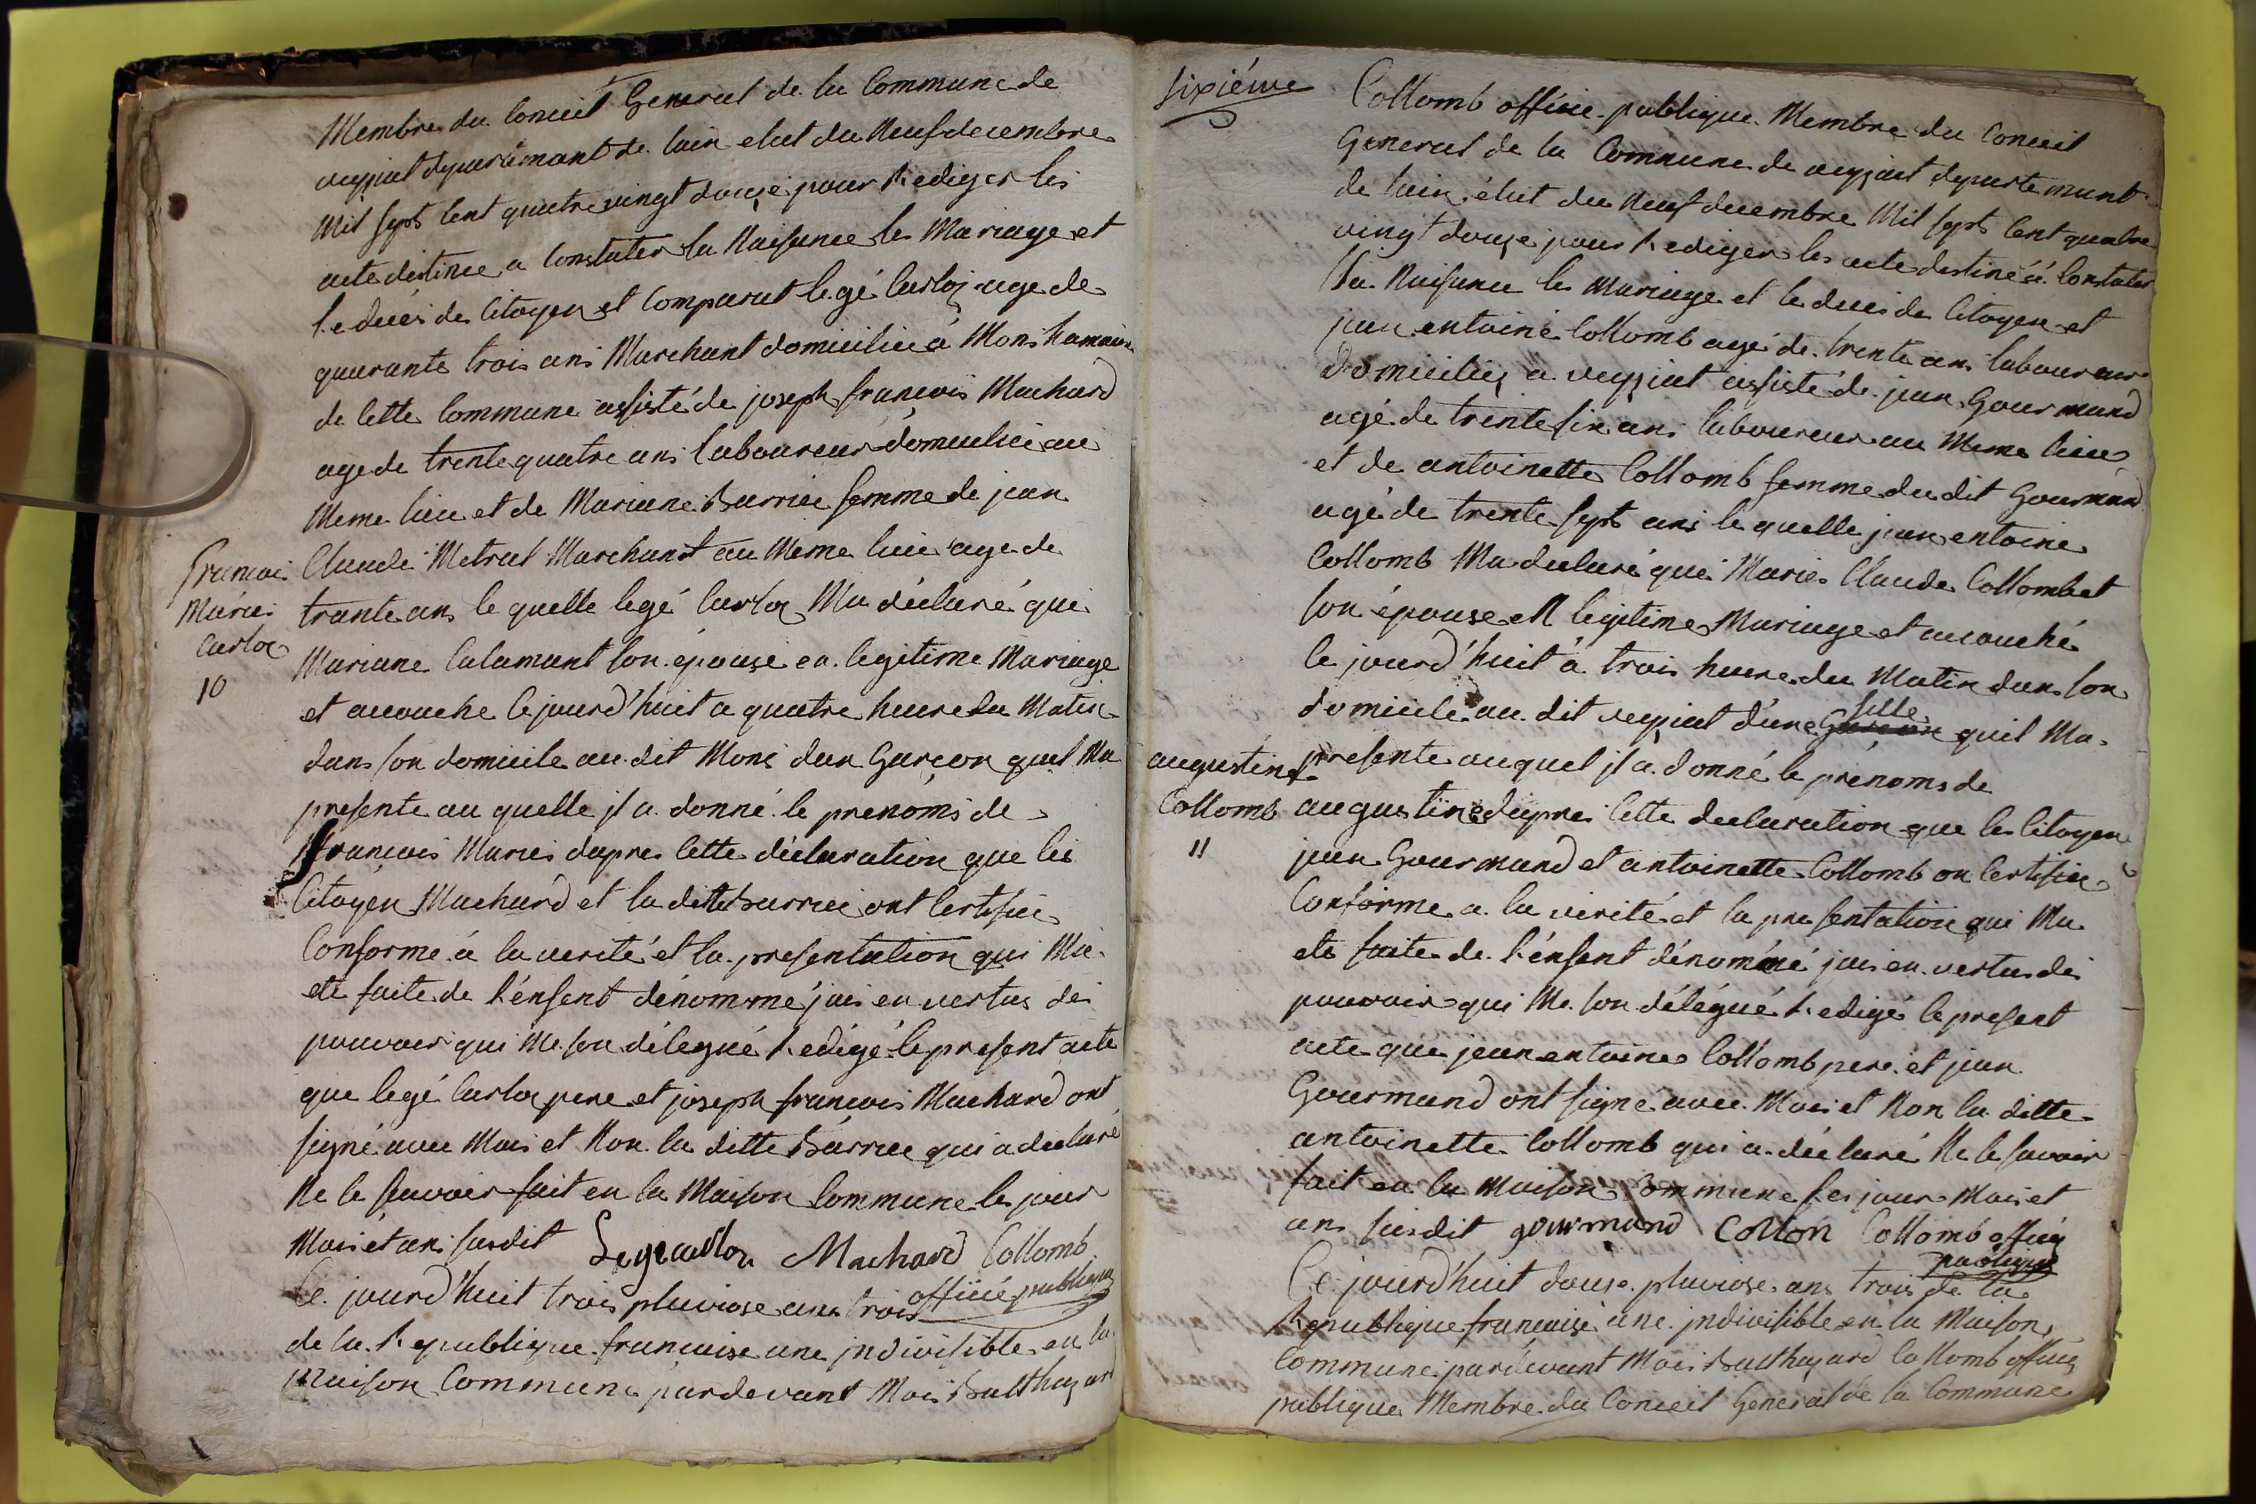 Membre du Conceit General de la Commune de
veyziat departemant de lain elut du Neuf decembre
Mil sept Cent quatre vingt douze pour Rediger les
acte destinee a Constater la Naisance les Mariage et
le déces de Citoyen et Comparut legé Carloz age de
quarante trois ans Marchant domicilié á Mons hameau
de Cette Commune assisté de joseph francois Machard
age de trente quatre ans laboureur domicilié au
Meme lieu et de Mariane Barrie femme de jean
Claude Metral Marchant au Meme lieu age de
francoi
Maries
Carloz
10
trante ans le quelle legé Carloz Ma déclaré que
Mariane Calamant son épouse en legitime Mariage
et acouche Cejourd'huit a quatre heure du Matin
dans son domicile au dit Mons dun Garçon quil Ma
presente au quelle jl a donné le prenoms de
francois Maries dapres Cette déclaration que les
Citoyen Machard et la ditte Barriei ont Certifiée
Conforme á la verité et la presentation qui Ma
eté faite de l'énfent dénommé jai en vertus des
pouvoir qui Me son délegué Redigé le present acte
que legé Carloz pere et joseph francois Machard ont
signé avec Moi et Non la ditte Barriee qui a declaré
Ne le seavoir fait en la Maison Commune le jour
Mois et ans susdit Legé carloz Machard Collomb
officié publique
Ce jourd'huit trois pluviose ans trois
de la Republique francaise une jndivisible en la
Maison Commune pardevant Moi Balthazard
sixiéme
Collomb officie publique Membre du Conceil
General de la Commune de veyziat departemant
de lain élut du Neuf decembre Mil sept Cent quatre
vingt douze pour Rediger les acte destiné á Constater
la Naisance les Mariage et le duces de Citoyen et
jean entoine Collomb agé de trente ans laboureur
domicilié a veyziat assisté de jean Gourmand
agé de trente six ans laboureur au Meme lieu
et de antoinette Collomb femme du dit Gourmand
agé de trente sept ans le quelle jean entoine
Collomb Ma declaré que Maries Claude Collombet
son épouse en legitime Mariage et acouché
le jourd'huit á trois heure du Matin dans son
domicile au dit veyziat d'une Garçon fille quil Ma
presente auquel jl a donné le prénoms de
augustine
Collomb
11
augustine dapres Cette declaration que les Citoyen
jean Gourmand et antoinette Collomb on Certifiée
Conforme a la verité et la presentation qui Ma
eté faite de l'énfent dénommé jai en vertus des
pouvoir qui Me son délégué Redigé le present
acte que jean entoine Collomb pere et jean
Gourmand ont signe avec Moi et Non la ditte
antoinette Collomb qui a déclaré Ne le savoir
fait en la Maison Commune les jour Mois et
ans susdit gourmand Collon Collomb officié
publique
Ce jourd'huit douse pluviose ans trois de la
Republique francaise une jndivisible en la Maison
Commune pardevant Moi Balthazard Collomb officié
publique Membre du Conceil General de la Commune